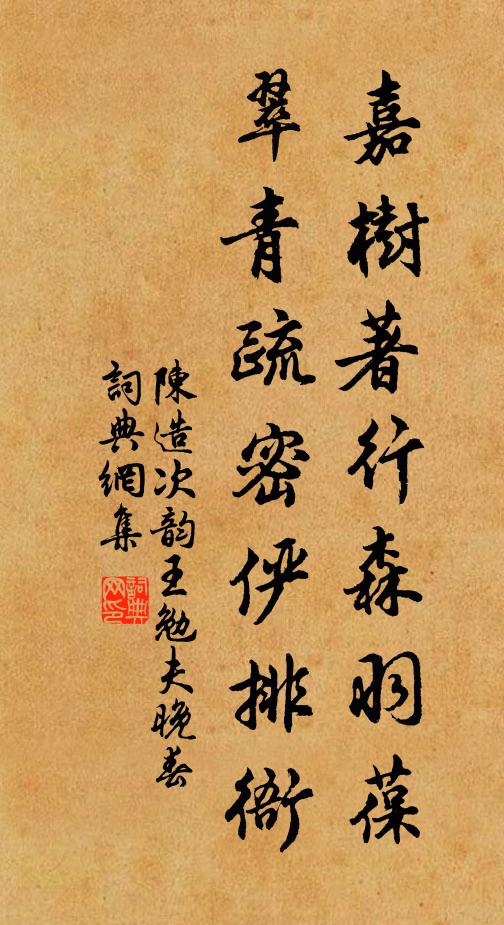 嘉樹著行森羽葆
翠青疏密俨排衙
陳造次韵王勉夫晚春
詞典網集
詞典网印